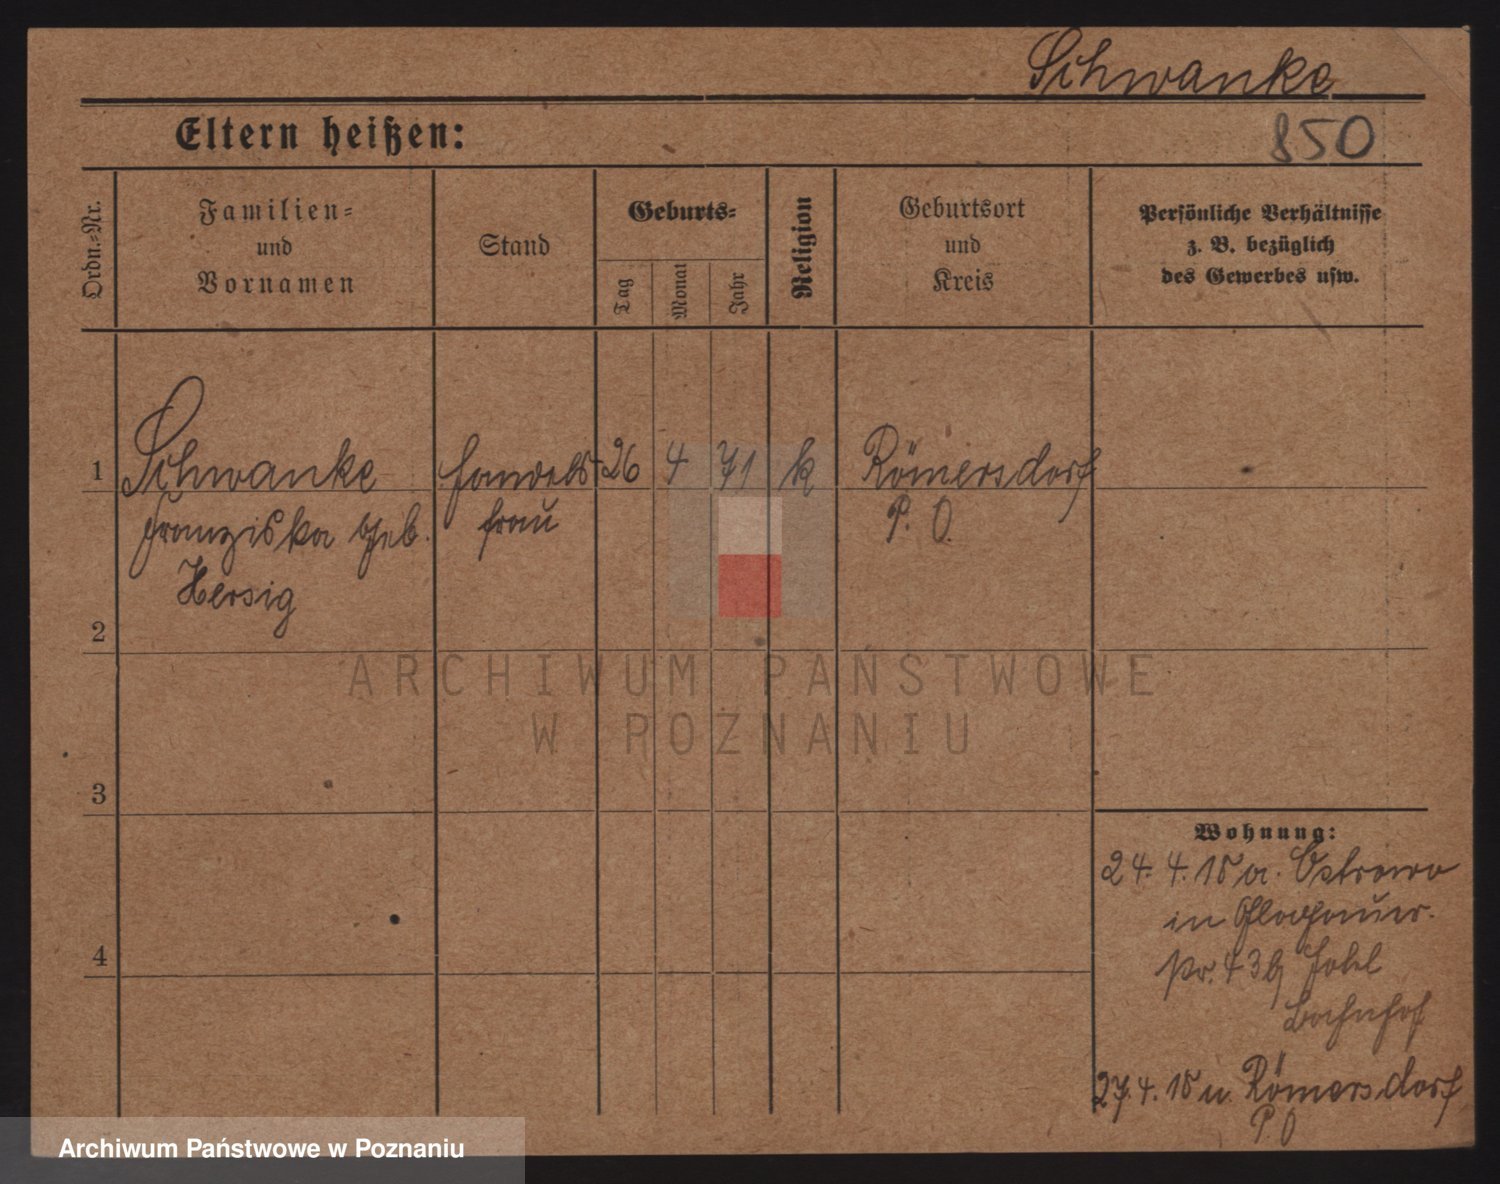 Schwanke
Eltern heißen:
850
Ordn.-Nr.
Familien-
und
Vornamen
Stand
Geburts-
Tag
Monat
Jahr
Religion
Geburtsort
und
Kreis
Persönliche Verhältnisse
z. B. bezüglich
des Gewerbes usw.
1 Schwanke Handels- 26 4 71 k Römersdorf
Franziska geb. frau P. O.
Hersig
2
3
4
Wohnung:
24. 4. 15 a. Ostrowo
in Glogauer-
str. 43b Hotel
Bahnhof
27. 4. 15 n. Römersdorf
P. O
ARCHIWUM PAŃSTWOWE
W POZNANIU
Archiwum Państwowe w Poznaniu